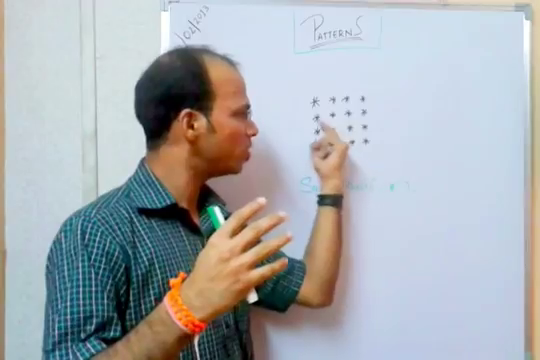 /02/2013
PATTERNS
* * * *
* * * *
* * *
* *